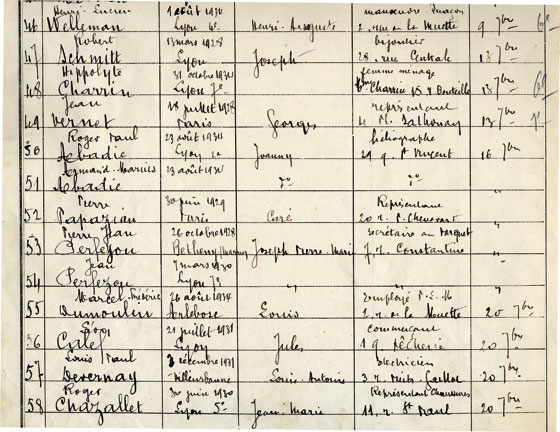 Henri Lucien 1 août 1930 manœuvre maçon
46 Welleman Lyon 4e Henri-Auguste 2, rue de la Muette 9 7bre
Robert 13 mars 1928 bijoutier
47 Schmitt Lyon Joseph 28, rue Centrale 13 7bre
Hippolyte 31 octobre 1930 femme ménage
48 Charrin Lyon 7e 13 7bre
Jean 18 juillet 1928 représentant
49 Vernet Paris Georges 4 r. Sathonay 13 7bre
Roger Paul 23 août 1934
50 Abadie Lyon 2e Joanny 29 q. St Vincent 16 7bre
23 août 1931
51 Abadie do do "
Pierre 30 juin 1929 Représentant
52 Papazian Paris Caré 20 r. P. Chenavard "
Pierre Jean 26 octobre 1928 secrétaire au parquet
53 Perfezou Betheny (Marne) Joseph Pierre-Marie 7, r. Constantine "
Jean 7 mars 1930
54 Perfezou Lyon 7e " " "
Marcel Frédéric 26 août 1934 Employé
55 Dumoulin Louis 2, r. de la Muette 20 7bre
Léon 21 juillet 1931 commerçant
56 Calef Lyon Jules 19 Pêcherie 20 7bre
Louis Paul 3 décembre 1931 électricien
57 Devernay Villeurbanne Louis-Antoine 3 r. Puits-Gaillot 20 7bre
Roger 30 juin 1930 Représentant Chaussures
58 Chazallet Lyon 5e Jean-Marie 11, r. St Paul 20 7bre